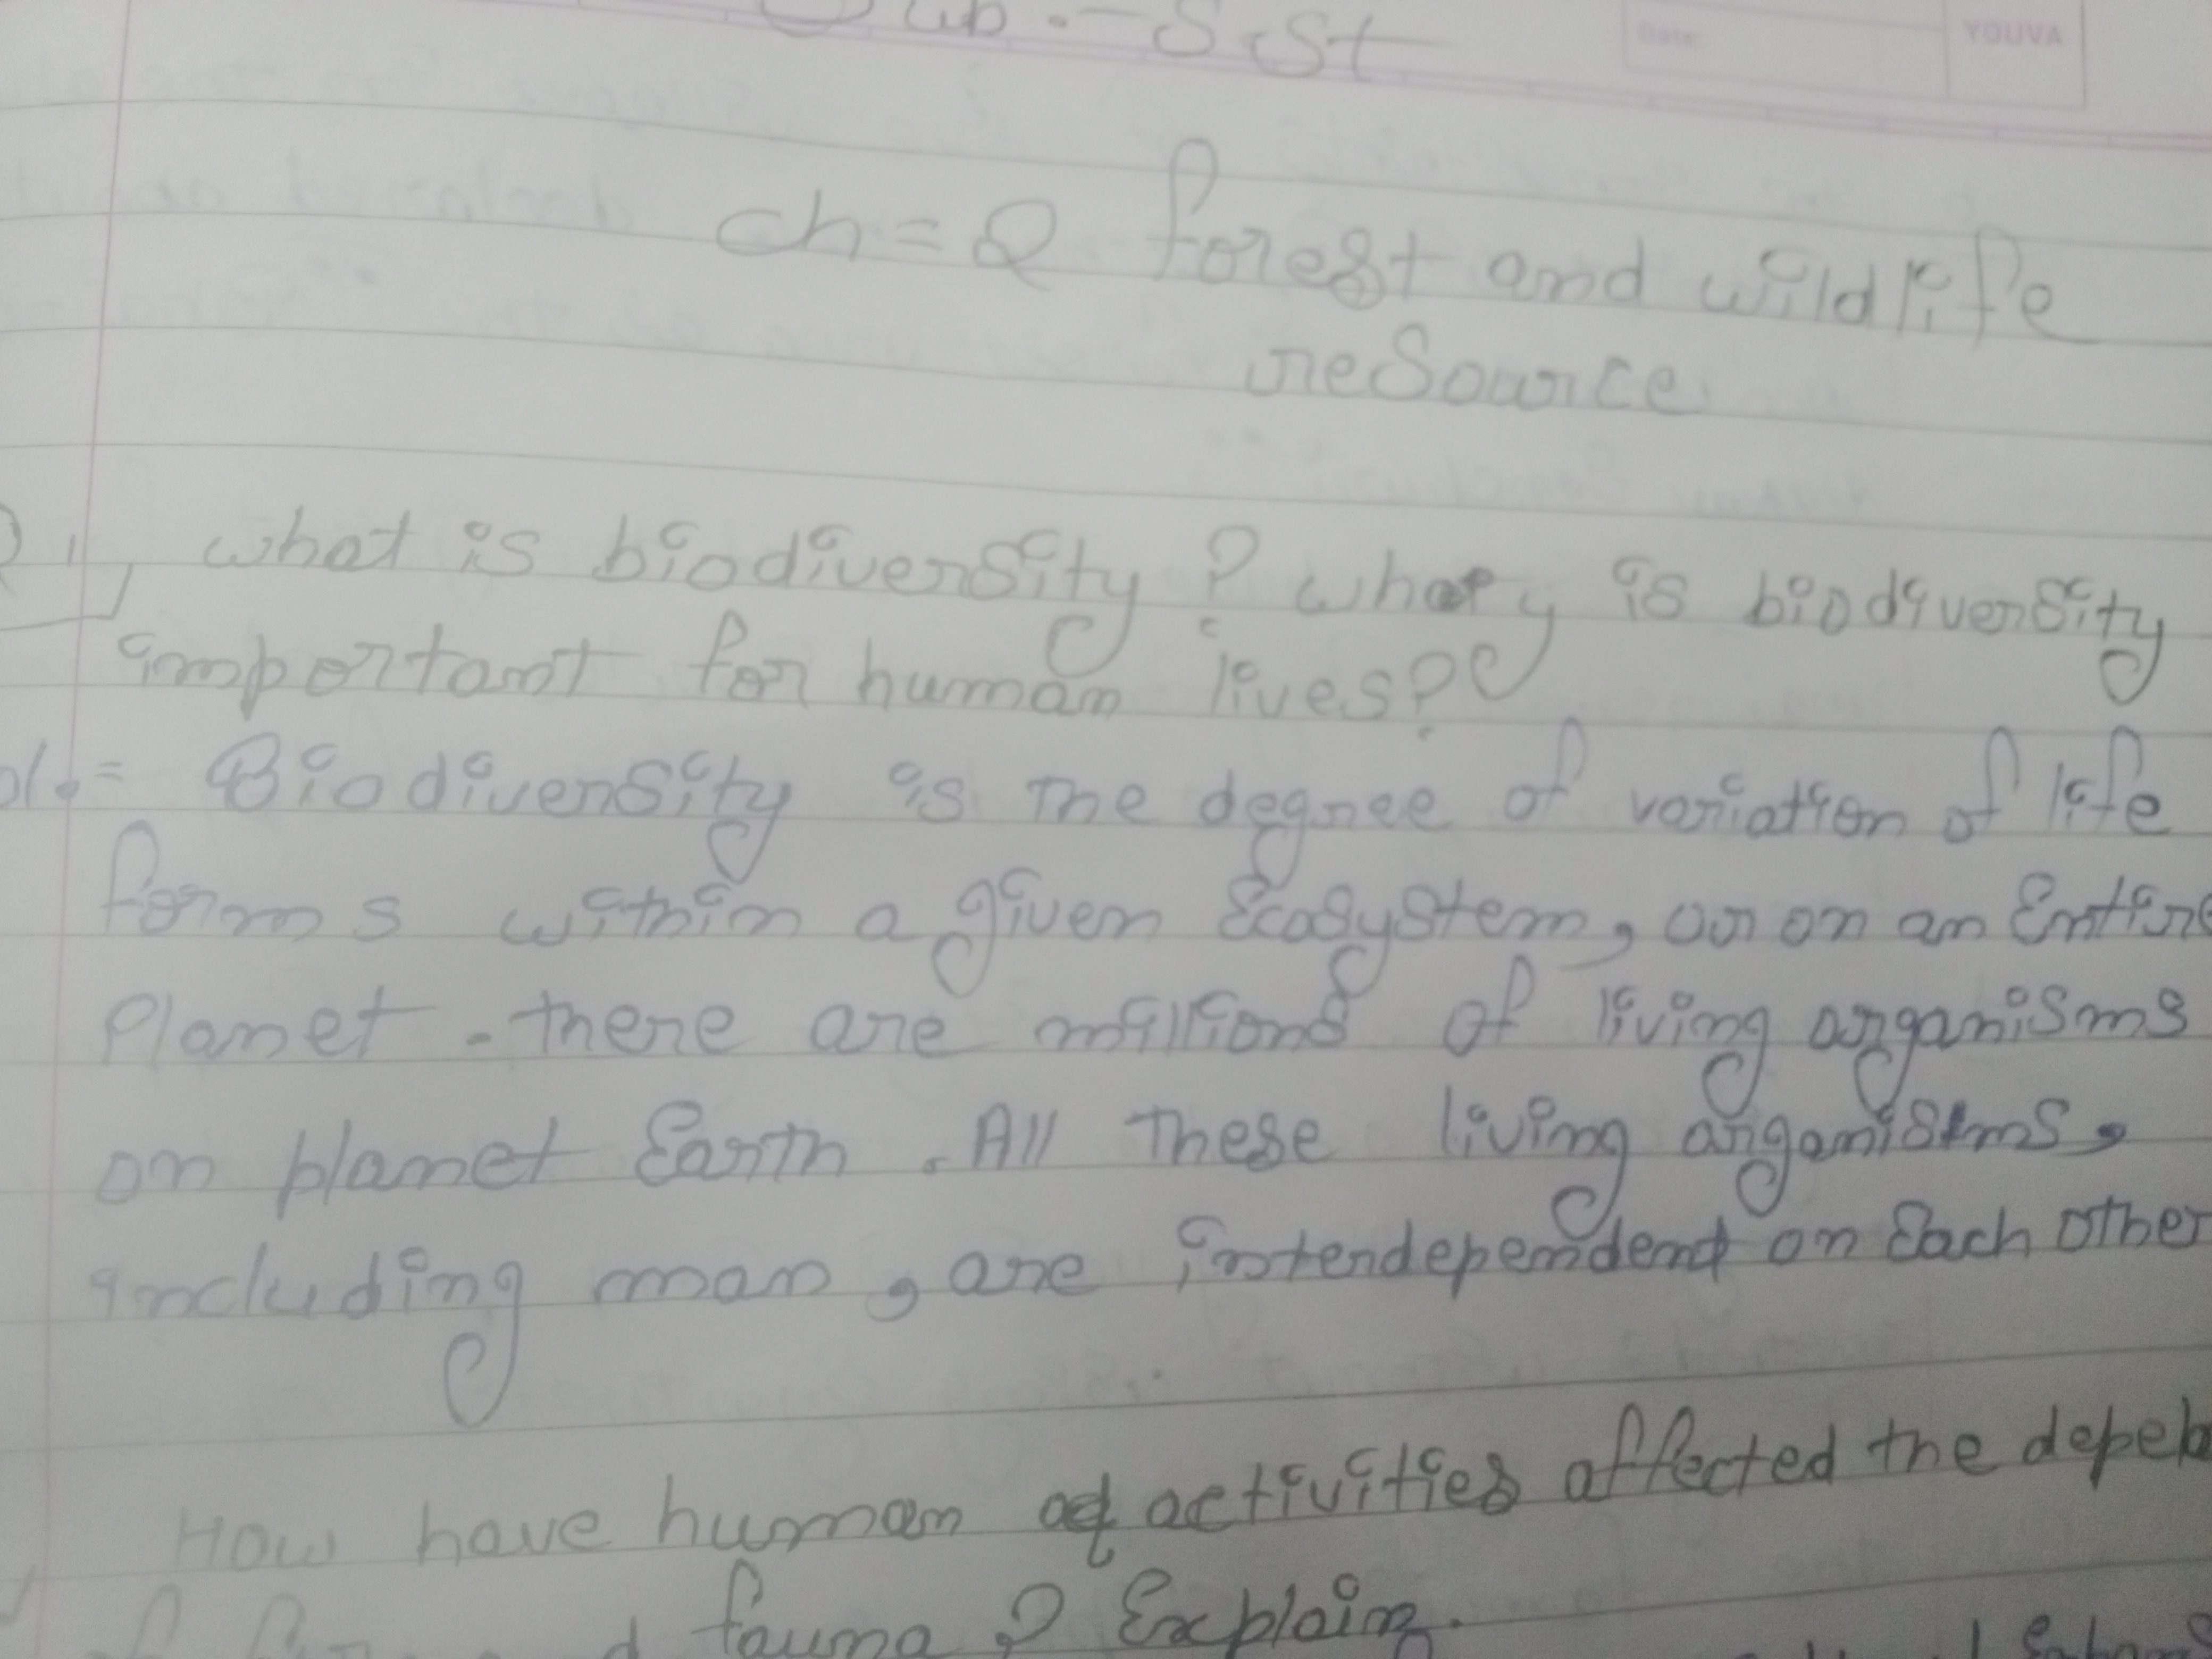 Sub. - S.St
Date: YOUVA
ch = 2 forest and wildlife
reSource
Q 1, what is biodiversity ? whey is biodiversity
important for human lives?
ol. = Biodiversity is the degree of variation of life
forms within a given Ecosystem, or on an Entire
Planet. there are millions of living organisms
on planet Earth. All these living organisms,
including man, are interdependent on Each other
How have human activities affected the deple
fauna ? Explain.